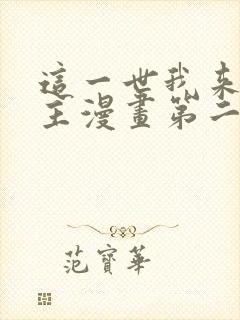 這一世我來
主漫畫第二
范寶華